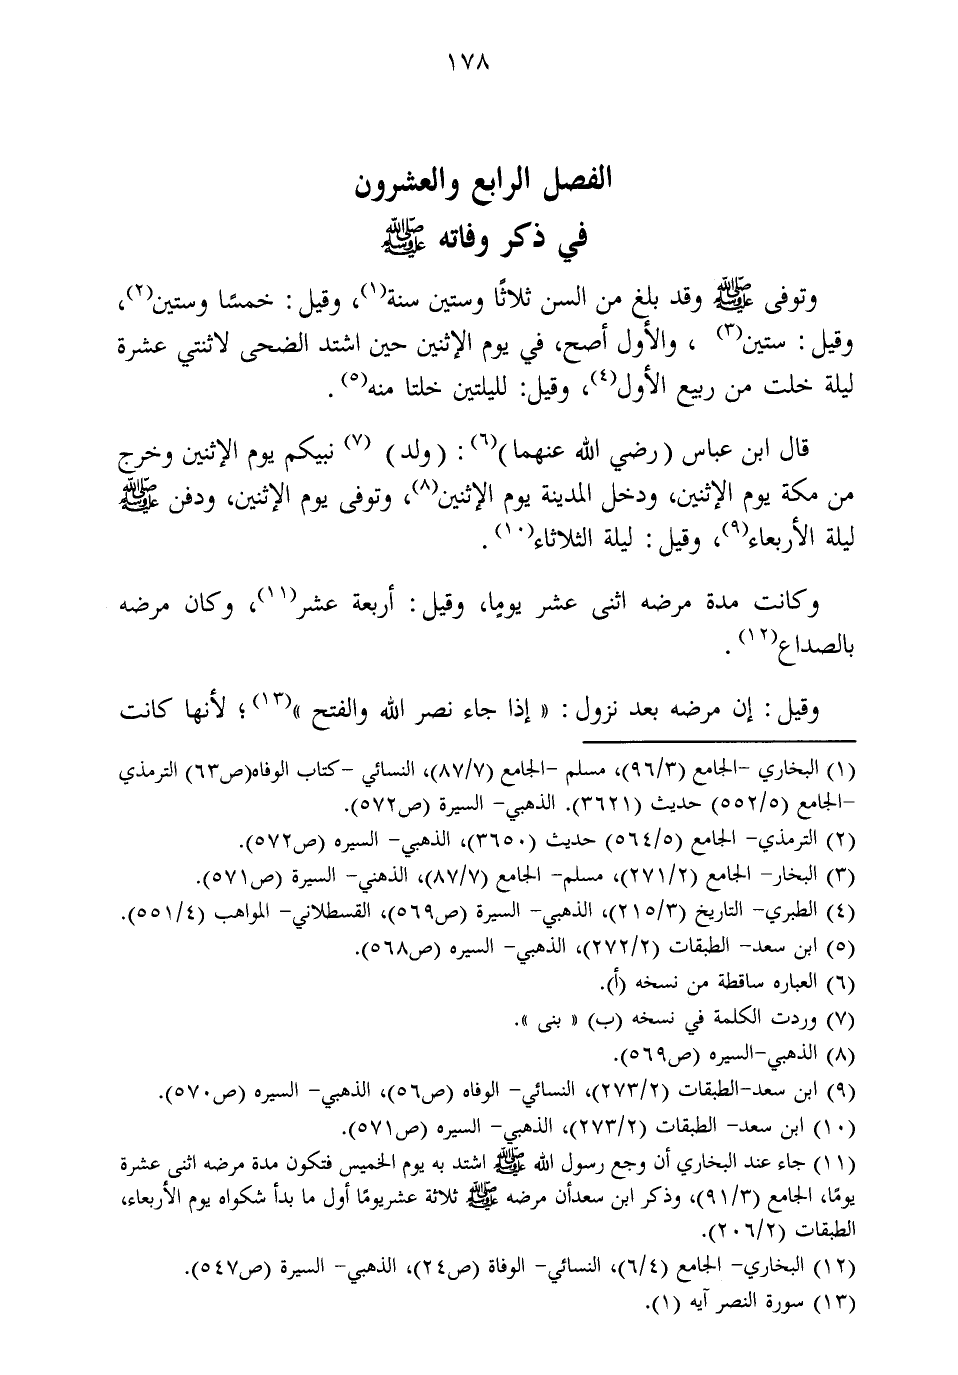 ١٧٨
الفصل الرابع والعشرون
في ذكر وفاته ﷺ
وتوفى ﷺ وقد بلغ من السن ثلاثًا وستين سنة(١)، وقيل: خمسًا وستين(٢)،
وقيل: ستين(٣) ، والأول أصح، في يوم الإثنين حين اشتد الضحى لاثنتي عشرة
ليلة خلت من ربيع الأول(٤)، وقيل: لليلتين خلتا منه(٥).
قال ابن عباس (رضي الله عنهما)(٦): (ولد) (٧) نبيكم يوم الإثنين وخرج
من مكة يوم الإثنين، ودخل المدينة يوم الإثنين(٨)، وتوفى يوم الإثنين، ودفن ﷺ
ليلة الأربعاء(٩)، وقيل: ليلة الثلاثاء(١٠).
وكانت مدة مرضه اثنى عشر يومًا، وقيل: أربعة عشر(١١)، وكان مرضه
بالصداع(١٢).
وقيل: إن مرضه بعد نزول: « إذا جاء نصر الله والفتح »(١٣)؛ لأنها كانت
(١) البخاري -الجامع (٩٦/٣)، مسلم -الجامع (٨٧/٧)، النسائي -كتاب الوفاه(ص٦٣) الترمذي
-الجامع (٥٥٢/٥) حديث (٣٦٢١). الذهبي- السيرة (ص٥٧٢).
(٢) الترمذي- الجامع (٥٦٤/٥) حديث (٣٦٥٠)، الذهبي- السيره (ص٥٧٢).
(٣) البخار- الجامع (٢٧١/٢)، مسلم- الجامع (٨٧/٧)، الذهني- السيرة (ص٥٧١).
(٤) الطبري- التاريخ (٢١٥/٣)، الذهبي- السيرة (ص٥٦٩)، القسطلاني- المواهب (٥٥١/٤).
(٥) ابن سعد- الطبقات (٢٧٢/٢)، الذهبي- السيره (ص٥٦٨).
(٦) العباره ساقطة من نسخه (أ).
(٧) وردت الكلمة في نسخه (ب) « بنى ».
(٨) الذهبي-السيره (ص٥٦٩).
(٩) ابن سعد-الطبقات (٢٧٣/٢)، النسائي- الوفاه (ص٥٦)، الذهبي- السيره (ص٥٧٠).
(١٠) ابن سعد- الطبقات (٢٧٣/٢)، الذهبي- السيره (ص٥٧١).
(١١) جاء عند البخاري أن وجع رسول الله ﷺ اشتد به يوم الخميس فتكون مدة مرضه اثنى عشرة
يومًا، الجامع (٩١/٣)، وذكر ابن سعدأن مرضه ﷺ ثلاثة عشريومًا أول ما بدأ شكواه يوم الأربعاء،
الطبقات (٢٠٦/٢).
(١٢) البخاري- الجامع (٦/٤)، النسائي- الوفاة (ص٢٤)، الذهبي- السيرة (ص٥٤٧).
(١٣) سورة النصر آيه (١).